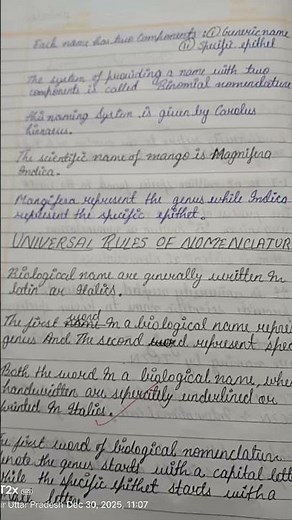 Each name has two components :(i) Generic name
(ii) Specific epithet
The system of providing a name with two
components is called Binomial nomenclature
This naming System is given by Carolus
lineaus.
The scientific name of mango is Magnifera
Indica.
Mangifera represent the genus while Indica
represent the specific epithet.
UNIVERSAL RULES OF NOMENCLATUR
Biological name are generally written In
latin or Italics.
The first word In a biological name repres
genus And The second word represent spec
Both the word In a biological name, when
handwritten are seperately underlined or
printed In Italics.
first word of biological nomenclature
the genus starts with a capital lett
while the specific epithet starts with a
letter
T2x
Uttar Pradesh Dec 30, 2025, 11:07